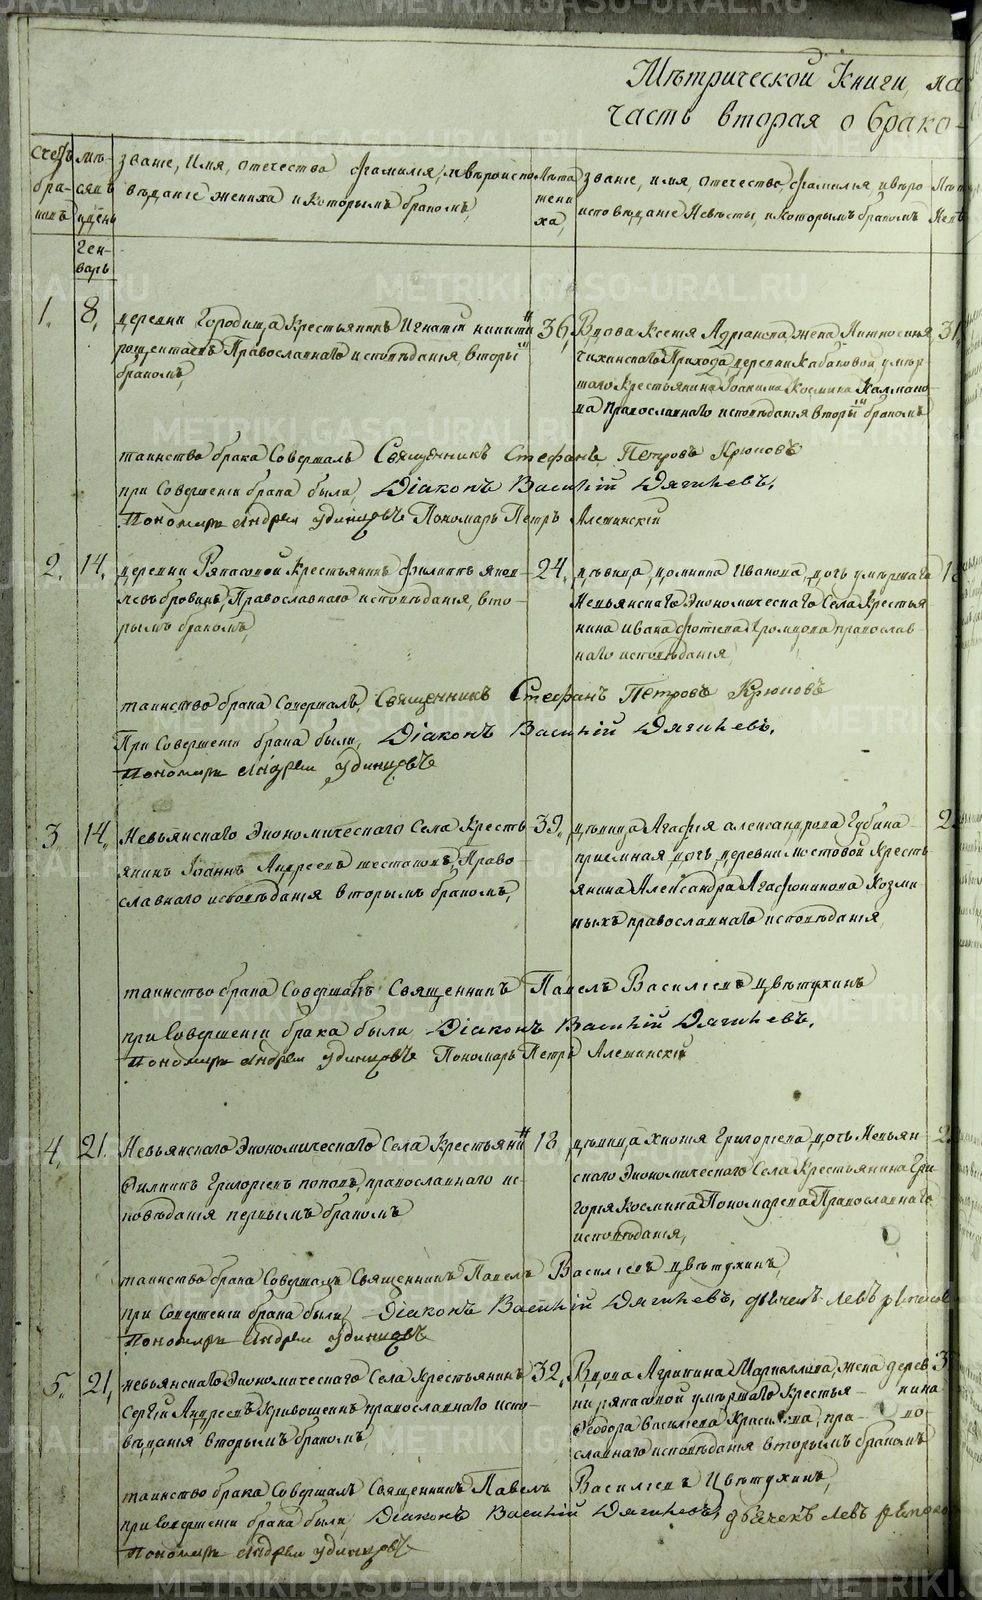 Мѣтрической Книги, на
часть вторая о брако-
Счетъ
бра-
ковъ
мѣ-
сяцъ
и день
званіе, имя, отечество фамилія, и вѣроиспо
вѣданіе жениха и которымъ бракомъ,
Лѣта
жени
ха,
званіе, имя, отечество, фамилія и вѣро
исповѣданіе невѣсты, и которымъ бракомъ
Лѣта
Нев
Ген-
варь
1. 8, деревни Городища Крестьянинъ Игнатій
Православнаго исповѣданія, вторы
бракомъ,
36,
Вдова Ксенія Адріанова, жена Нижнесиня
чихинскаго Прихода, деревни Кабаковой умер
шаго Крестьянина Іоакима Космина Калмако
ва Православнаго исповѣданія вторы бракомъ
31
таинство брака Совершалъ Священникъ Стефанъ Петровъ Крюковъ
при Совершеніи брака были, Діаконъ Василій Дягилевъ,
Пономарь Андрей Удинцовъ Пономарь Петръ
2. 14, деревни Ряпасовой Крестьянинъ Филиппъ Яков
левъ Бровинъ, Православнаго исповѣданія, вто-
рымъ бракомъ,
24,
дѣвица, Домника Иванова, дочь умершаго
Невьянскаго Экономическаго Села Крестья
нина Ивана Фотіева православ
наго исповѣданія,
таинство брака Совершалъ, Священникъ Стефанъ Петровъ Крюковъ
При Совершеніи брака были, Діаконъ Василій Дягилевъ,
Пономарь Андрей Удинцовъ
3 14, Невьянскаго Экономическаго Села Кресть
янинъ Іоаннъ Андреевъ Шестаковъ, Право-
славнаго исповѣданія вторымъ бракомъ,
39,
дѣвица Агафія Александрова Губина
пріемная дочь деревни Мостовой кресть
янина Александра Агафоникова Козми-
ныхъ православнаго исповѣданія,
2
таинство брака Совершалъ Священникъ Павелъ Василіевъ Цвѣтухинъ
при Совершеніи брака были Діаконъ Василій Дягилевъ,
Пономарь Андрей Удинцовъ Пономарь Петръ
4, 21. Невьянскаго Экономическаго Села Крестьяни
Филиппъ Григоріевъ Поповъ, православнаго ис-
повѣданія первымъ бракомъ
18
дѣвица Хіонія Григоріева, дочь Невьян-
скаго Экономическаго Села Крестьянина Гри
горія Космина Пономарева Православнаго
исповѣданія,
2
таинство брака Совершалъ Священникъ Павелъ Василіевъ Цвѣтухинъ,
при Совершеніи брака были, Діаконъ Василій Дягилевъ, дьячекъ Левъ
Пономарь Андрей Удинцовъ
5. 21, Невьянскаго Экономическаго Села Крестьянинъ
Сергій Андреевъ Кривошеинъ православнаго испо-
вѣданія вторымъ бракомъ,
32,
Вдова Агрипина Маркеллова, жена дерев
ни Ряпасовой умершаго Крестья- нина
Ѳеодора Василіева пра- во-
славнаго исповѣданія вторымъ бракомъ
3
таинство брака Совершалъ Священникъ Павелъ Василіевъ Цвѣтухинъ,
при Совершеніи брака были, Діаконъ Василій Дягилевъ, дьячекъ Левъ
Пономарь Андрей Удинцовъ
METRIKI.GASO-URAL.RU